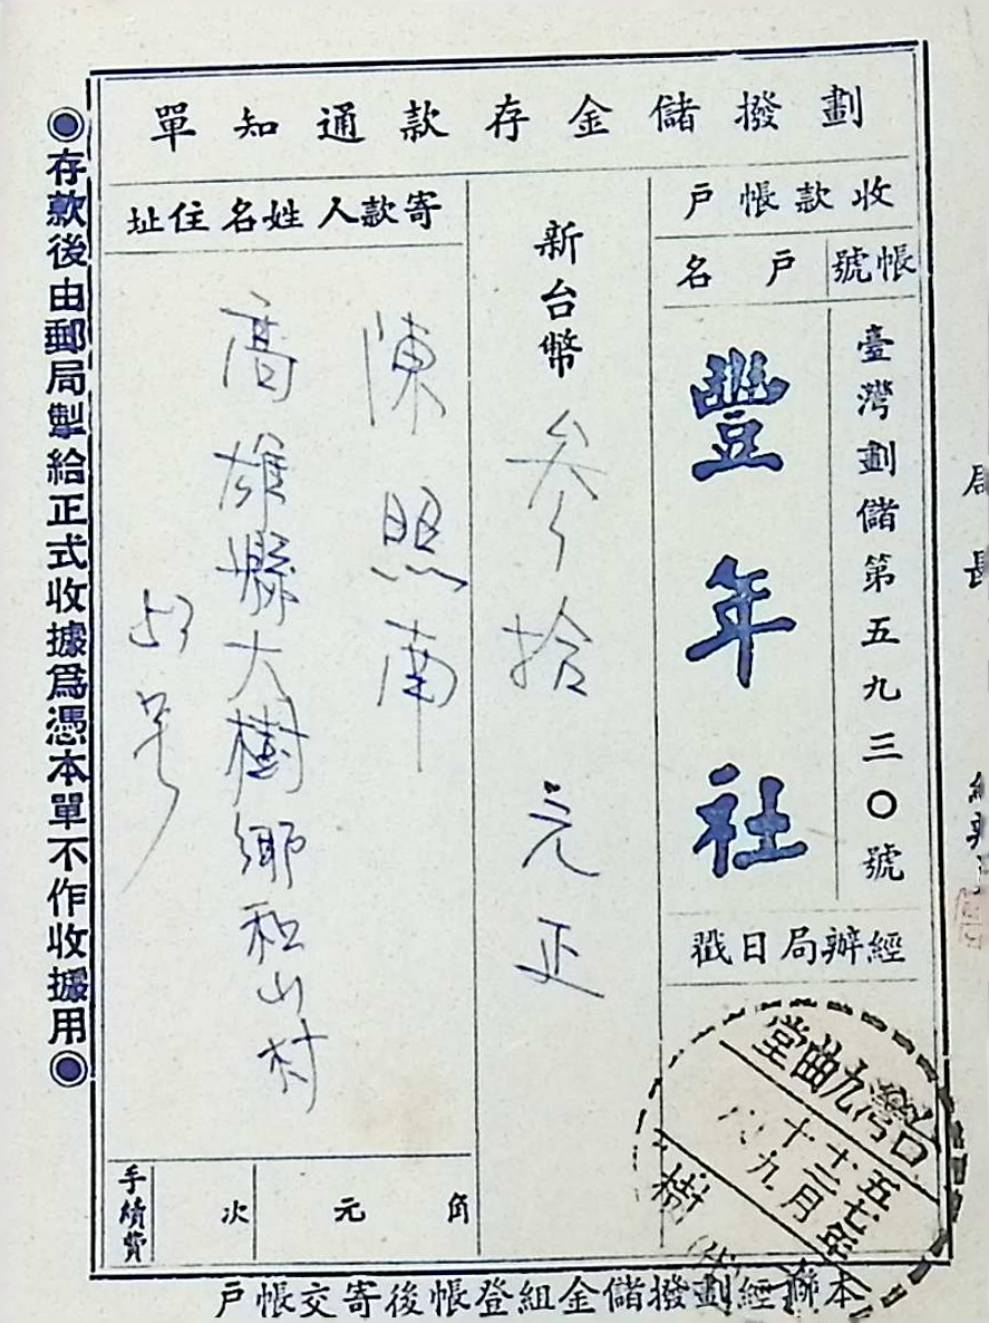 劃撥儲金存款通知單
收款帳戶
帳號
臺灣劃儲第五九三〇號
戶名
豐年社
經辦局日戳
台灣九曲堂
五七年
十二月
十九
樹
新台幣
參拾元正
寄款人姓名住址
陳照南
高雄縣大樹鄉和山村
53号
手續費
次
元
角
◉存款後由郵局掣給正式收據為憑本單不作收據用◉
本聯經劃撥儲金組登帳後寄交帳戶
局長